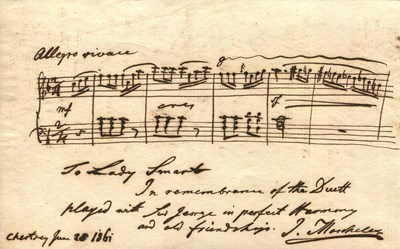 Allegro vivace
8
mf
cres
sf
To Lady Smart
In remembrance of the Duett
played with Sir George in perfect Harmony
and old friendship. I. Moscheles
Chertsey June 1861